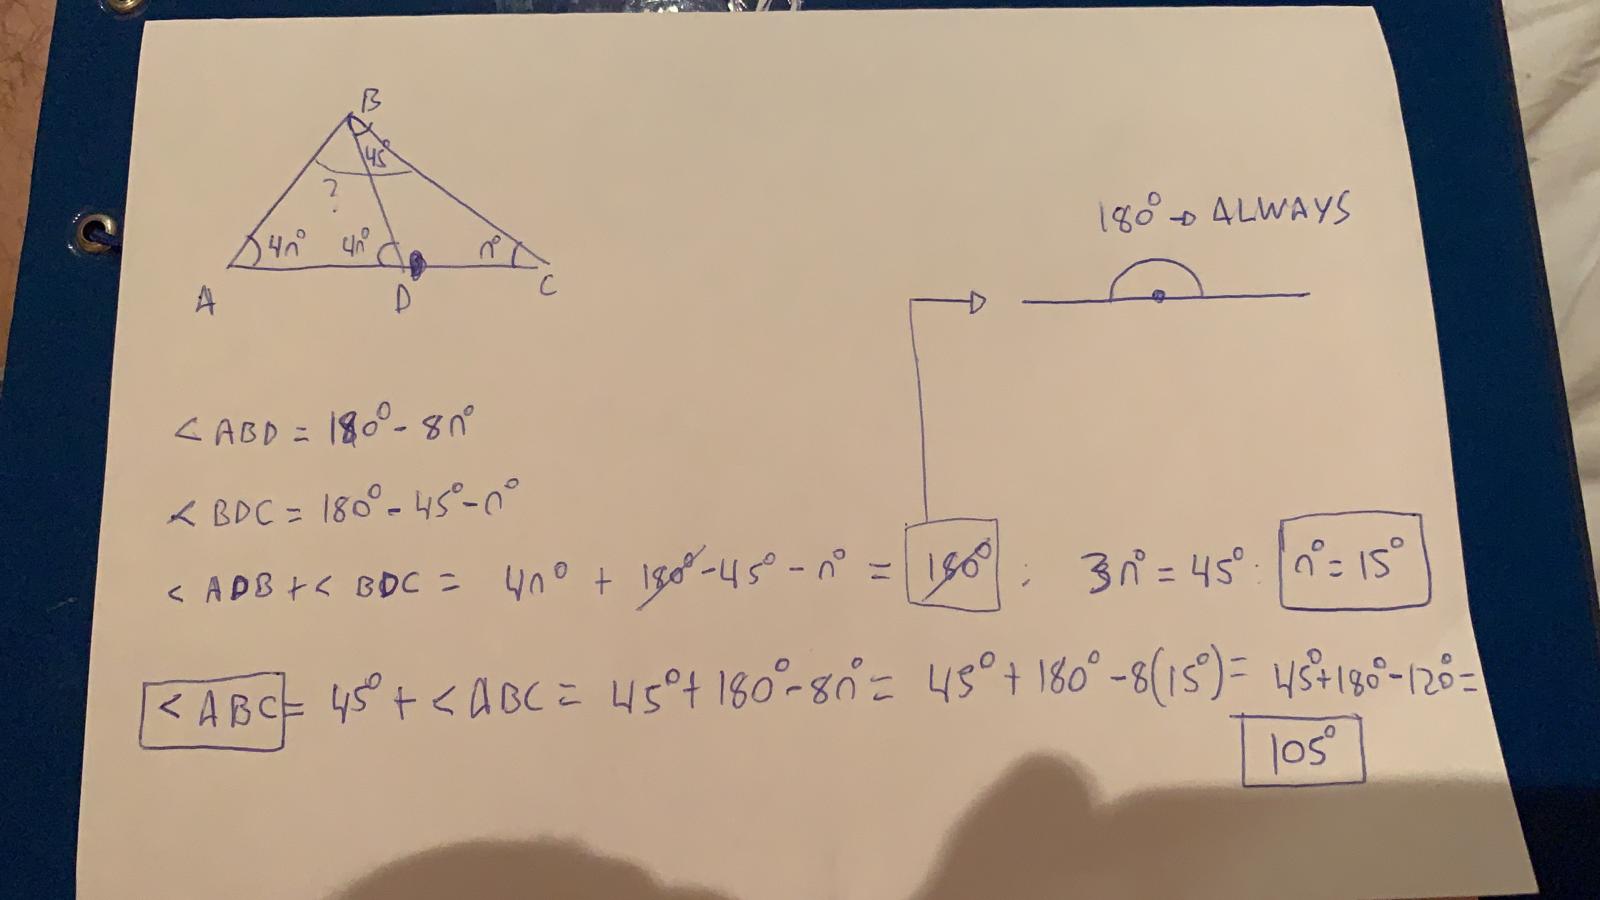 B
45°
?
4n° 4n° n°
A D C
180° → ALWAYS
< ABD = 180° - 8n°
< BDC = 180° - 45° - n°
< ADB + < BDC = 4n° + 180° - 45° - n° = 180° ; 3n° = 45° : n° = 15°
< ABC = 45° + < ABC = 45° + 180° - 8n° = 45° + 180° - 8(15°) = 45° + 180° - 120° =
105°